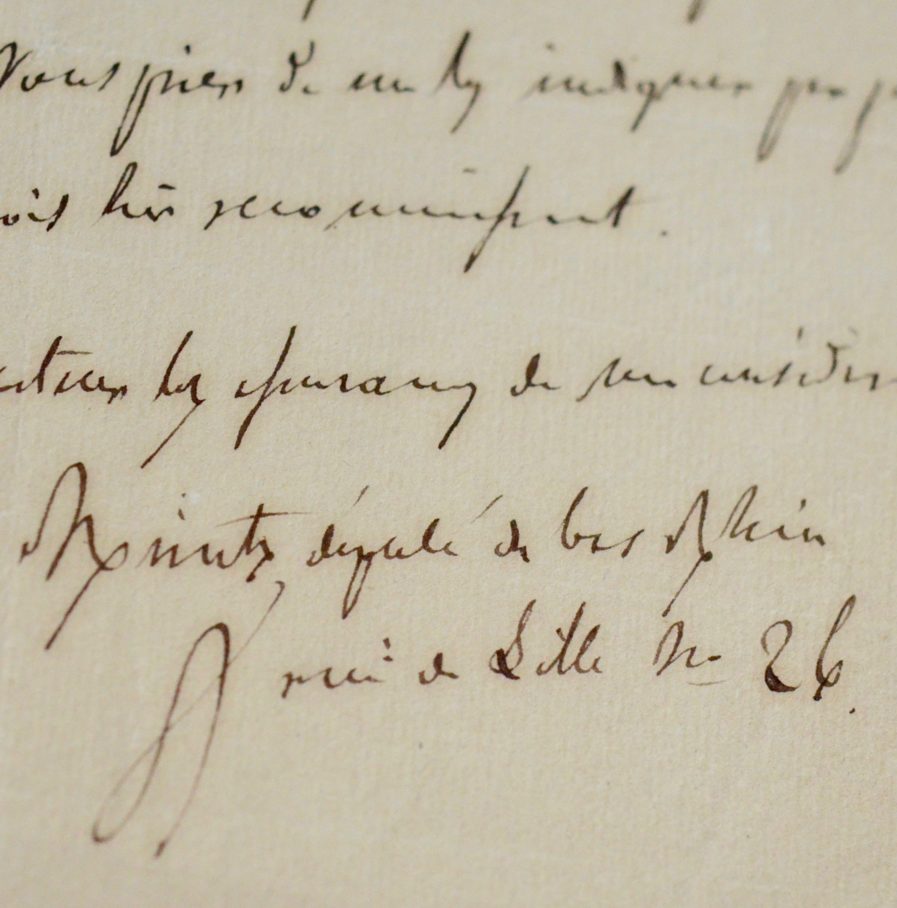 Vous prier de me les indiquer par
très reconnaissant.
les assurances de ma considér
député du bas Rhin
rue de Lille No 26.